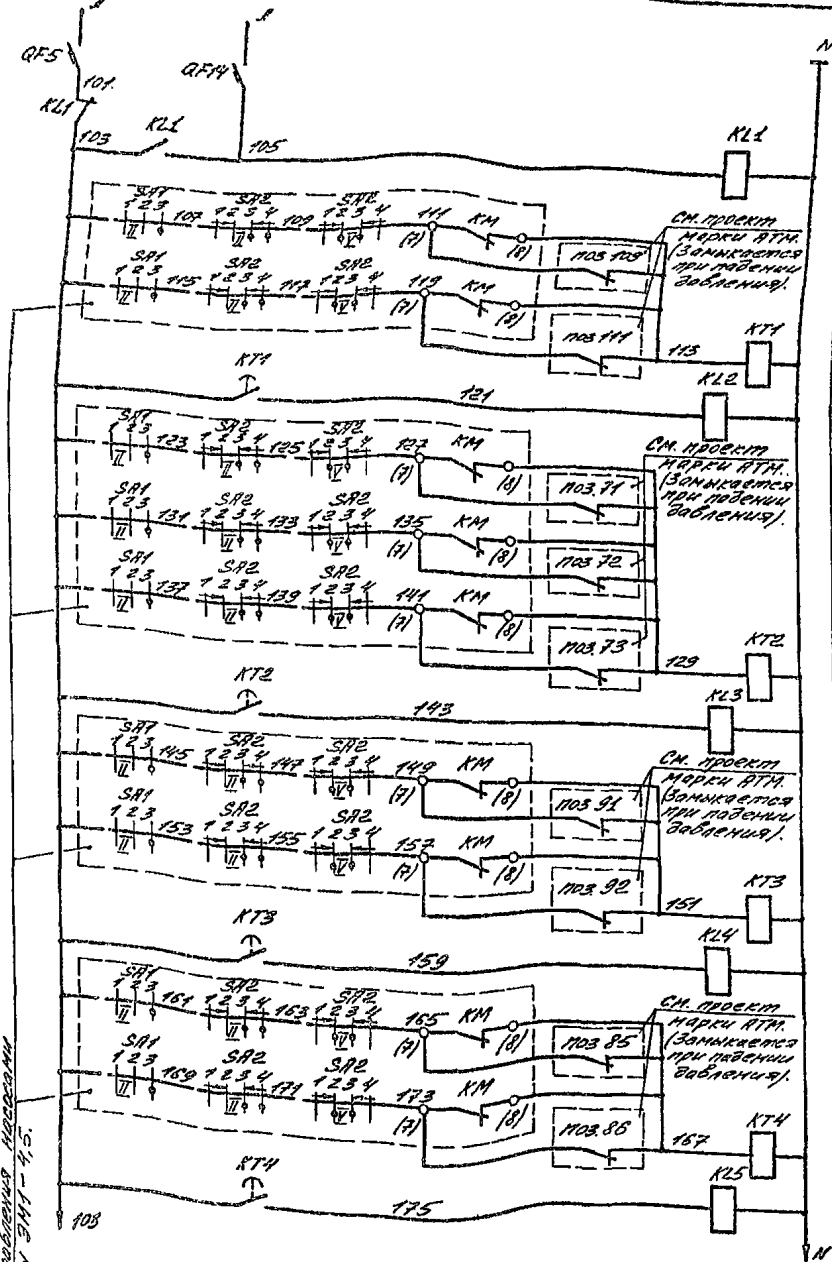 А
А
N
QF5
QF14
101.
KL1
103
KL1
105
KL1
SA1
1 2 3
II
107
SA2
1 2 3 4
II
109
SA2
1 2 3 4
V
111
(7)
KM
(8)
поз 109
См. проект
марки АТМ.
(Замыкается
при падении
давления).
SA1
1 2 3
II
115
SA2
1 2 3 4
II
117
SA2
1 2 3 4
V
119
(7)
KM
(8)
поз 111
113
KT1
KT1
121
KL2
SA1
1 2 3
II
123
SA2
1 2 3 4
II
125
SA2
1 2 3 4
V
127
(7)
KM
(8)
поз. 71
См. проект
марки АТМ.
(Замыкается
при падении
давления).
SA1
1 2 3
II
131
SA2
1 2 3 4
II
133
SA2
1 2 3 4
V
135
(7)
KM
(8)
поз. 72
SA1
1 2 3
II
137
SA2
1 2 3 4
II
139
SA2
1 2 3 4
V
141
(7)
KM
(8)
поз. 73
129
KT2
KT2
143
KL3
SA1
1 2 3
II
145
SA2
1 2 3 4
II
147
SA2
1 2 3 4
V
149
(7)
KM
(8)
поз. 91
См. проект
марки АТМ.
(Замыкается
при падении
давления).
SA1
1 2 3
II
153
SA2
1 2 3 4
II
155
SA2
1 2 3 4
V
157
(7)
KM
(8)
поз. 92
151
KT3
KT3
159
KL4
SA1
1 2 3
II
161
SA2
1 2 3 4
II
163
SA2
1 2 3 4
V
165
(7)
KM
(8)
поз 85
См. проект
марки АТМ.
(Замыкается
при падении
давления).
SA1
1 2 3
II
169
SA2
1 2 3 4
II
171
SA2
1 2 3 4
V
173
(7)
KM
(8)
поз. 86
167
KT4
KT4
175
KL5
103
N
насосами
ЭМ1-4,5.